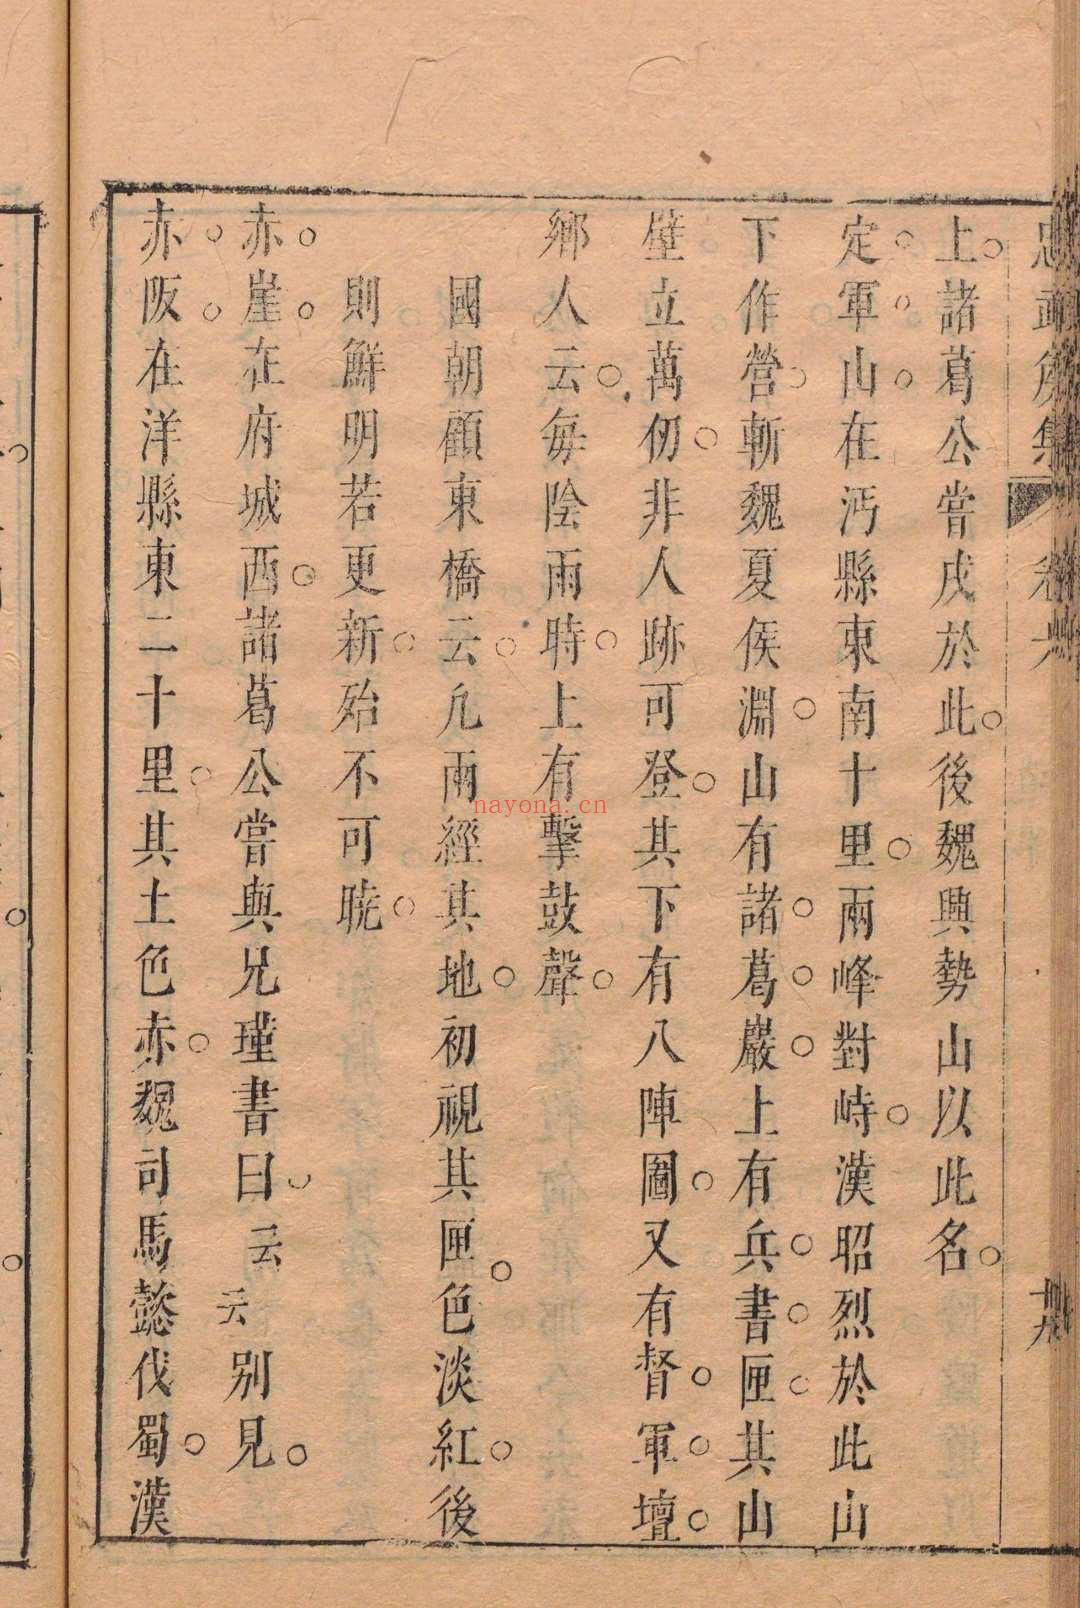 上諸葛公嘗戍於此後魏興勢山以此名
定軍山在沔縣東南十里兩峰對峙漢昭烈於此山
下作營斬魏夏侯淵山有諸葛巖上有兵書匣其山
壁立萬仞非人跡可登其下有八陣圖又有督軍壇
鄉人云每陰雨時上有擊鼓聲
國朝顧東橋云凢兩經其地初視其匣色淡紅後
則鮮明若更新殆不可曉
赤崖在府城西諸葛公嘗與兄瑾書曰云云別見
赤阪在洋縣東二十里其土色赤魏司馬懿伐蜀漢
nayona.cn